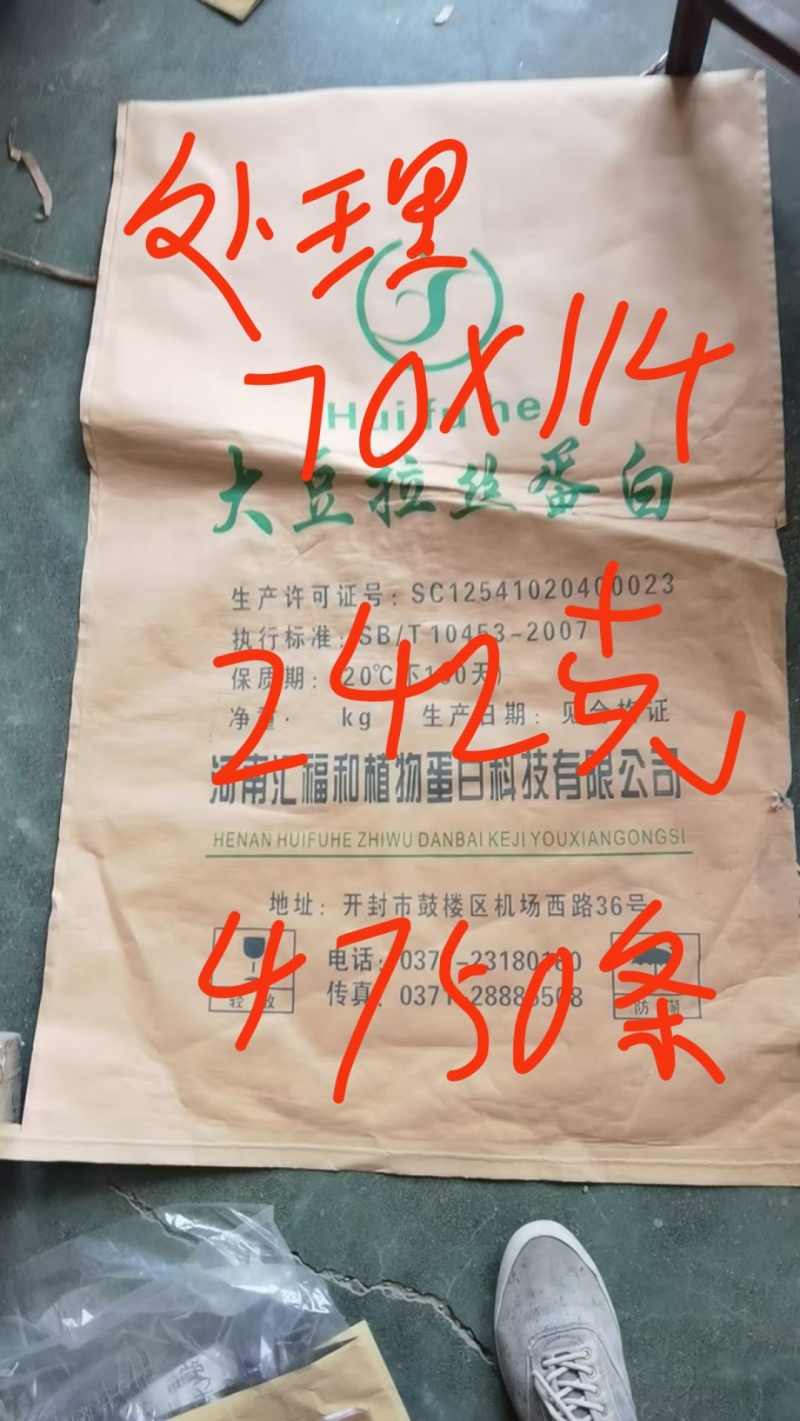 处理
70X114
Huifuhe
大豆拉丝蛋白
生产许可证号：SC12541020400023
执行标准：SB/T10453-2007
242克
保质期：20℃下180天)
净重： kg 生产日期：见合格证
河南汇福和植物蛋白科技有限公司
HENAN HUIFUHE ZHIWU DANBAI KEJI YOUXIANGONGSI
地址：开封市鼓楼区机场西路36号
4750条
电话：0371-23180180
传真：0371-28885508
轻放
防潮